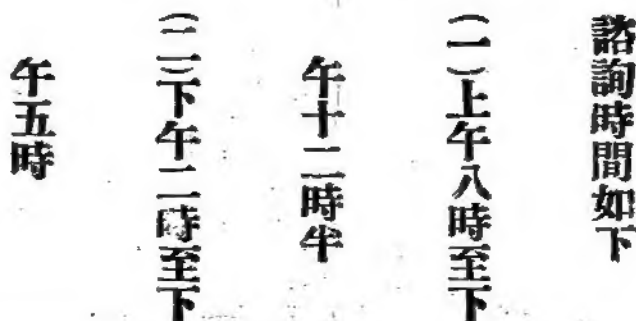 諮詢時間如下
(一)上午八時至下
午十二時半
(二)下午二時至下
午五時